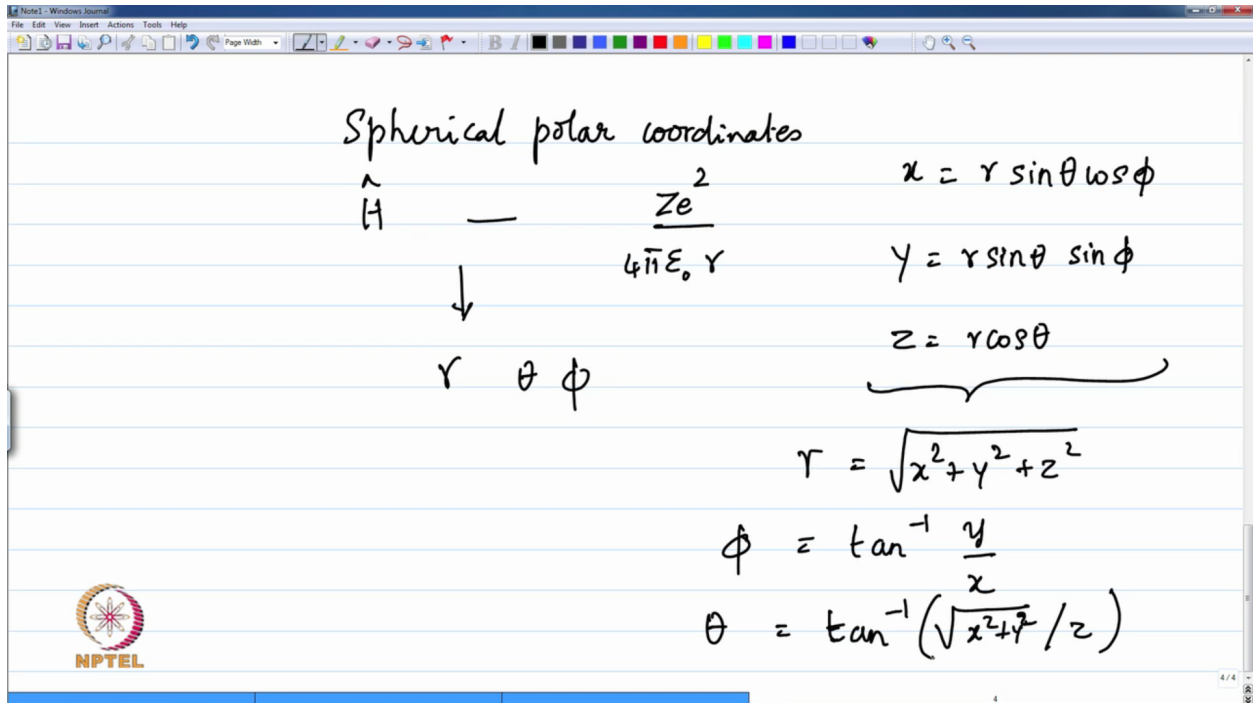 Note1 - Windows Journal
File Edit View Insert Actions Tools Help
Page Width
B I
Spherical polar coordinates
Ĥ — Ze² / 4πε₀ r
↓
r θ ϕ
x = r sinθ cosϕ
y = r sinθ sinϕ
z = r cosθ
r = √x²+y²+z²
ϕ = tan⁻¹ y/x
θ = tan⁻¹(√x²+y² / z)
NPTEL
4 / 4
4